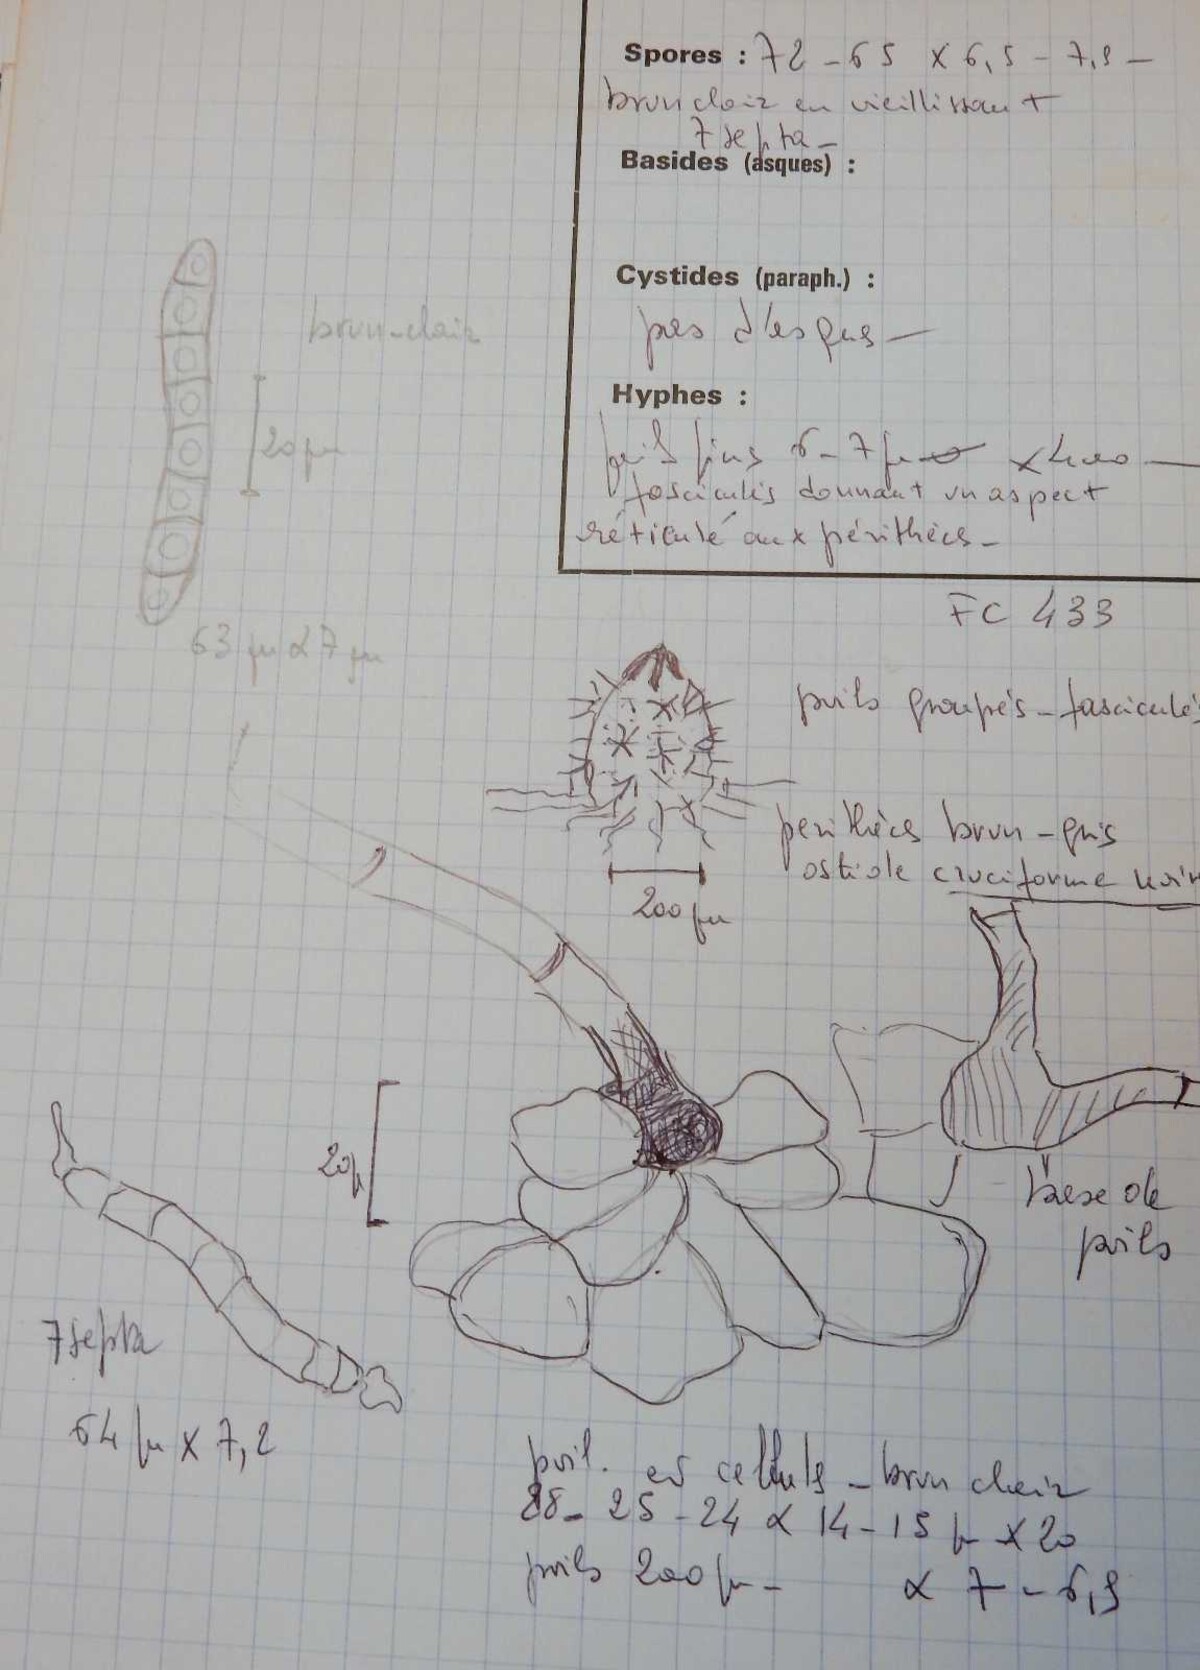 Spores : 72 - 65 x 6,5 - 7,5 -
brun clair en vieillissant
7 septa -
Basides (asques) :
Cystides (paraph.) :
pas d'asques -
Hyphes :
poils fins 6 - 7 µ x
fasciculés donnant un aspect
réticulé aux périthèces -
FC 433
brun-clair
20 µ
63 µ x 7 µ
poils groupés - fasciculés
périthèces brun - gris
ostiole cruciforme noir
200 µ
20 µ
Base de
poils
7 septa
64 µ x 7,2
poil. et cellules - brun clair
28 - 25 - 24 x 14 - 15 µ x 20
poils 200 µ - x 7 - 6,5